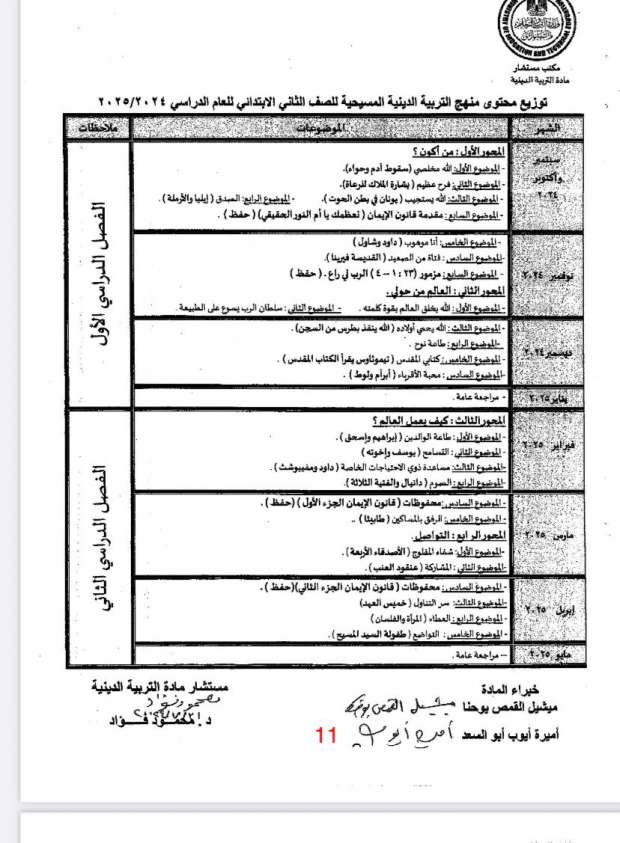 MINISTRY OF EDUCATION AND TECHNICAL EDUCATION
مكتب مستشار
مادة التربية الدينية
توزيع محتوى منهج التربية الدينية المسيحية للصف الثاني الابتدائي للعام الدراسي ٢٠٢٤/٢٠٢٥
الشهر
الموضوعات
ملاحظات
سبتمبر وأكتوبر ٢٠٢٤
المحور الأول : من أكون ؟
- الموضوع الأول: الله مخلصي (سقوط آدم وحواء).
- الموضوع الثاني: فرح عظيم ( بشارة الملاك للرعاة).
- الموضوع الثالث: الله يستجيب ( يونان في بطن الحوت ). - الموضوع الرابع: الصدق ( إيليا والأرملة ) .
- الموضوع السابع: مقدمة قانون الإيمان ( نعظمك يا أم النور الحقيقي) ( حفظ ) .
الفصل الدراسي الأول
نوفمبر ٢٠٢٤
- الموضوع الخامس: أنا موهوب ( داود وشاول )
-الموضوع السادس: فتاة من الصعيد (القديسة فيرينا).
- الموضوع السابع: مزمور (٢٣ : ١ – ٤ ) الرب لي راع . ( حفظ )
المحور الثاني : العالم من حولي.
- الموضوع الأول: الله يخلق العالم بقوة كلمته . - الموضوع الثاني : سلطان الرب يسوع على الطبيعة .
ديسمبر ٢٠٢٤
- الموضوع الثالث: الله يحمي أولاده ( الله ينقذ بطرس من السجن).
-الموضوع الرابع: طاعة نوح .
- الموضوع الخامس: كتابي المقدس ( تيموثاوس يقرأ الكتاب المقدس) .
- الموضوع السادس: محبة الأقرباء ( أبرام ولوط ) .
يناير ٢٠٢٥
- مراجعة عامة .
فبراير ٢٠٢٥
المحور الثالث : كيف يعمل العالم ؟
- الموضوع الأول: طاعة الوالدين ( إبراهيم وإسحق ) .
- الموضوع الثاني: التسامح ( يوسف وإخوته )
-الموضوع الثالث: مساعدة ذوي الاحتياجات الخاصة ( داود ومفيبوشث ) .
- الموضوع الرابع: الصوم ( دانيال والفتية الثلاثة ).
الفصل الدراسي الثاني
مارس ٢٠٢٥
- الموضوع السادس: محفوظات ( قانون الإيمان الجزء الأول ) ( حفظ ) .
- الموضوع الخامس: الرفق بالمساكين ( طابيثا ) ..
المحور الرابع : التواصل.
-الموضوع الأول: شفاء المفلوج ( الأصدقاء الأربعة ) .
- الموضوع الثاني : المشاركة ( عنقود العنب ) .
إبريل ٢٠٢٥
- الموضوع السادس: محفوظات ( قانون الإيمان الجزء الثاني)(حفظ ) .
-الموضوع الثالث: سر التناول ( خميس العهد)
- الموضوع الرابع: العطاء ( المرأة والفلسان )
- الموضوع الخامس: التواضع ( طفولة السيد المسيح ) .
مايو ٢٠٢٥
– مراجعة عامة .
خبراء المادة
مستشار مادة التربية الدينية
ميشيل القمص يوحنا ميشيل القمص يوحنا
محمود فؤاد
د/ محمود فؤاد
أميرة أيوب أبو السعد أميرة أيوب
11